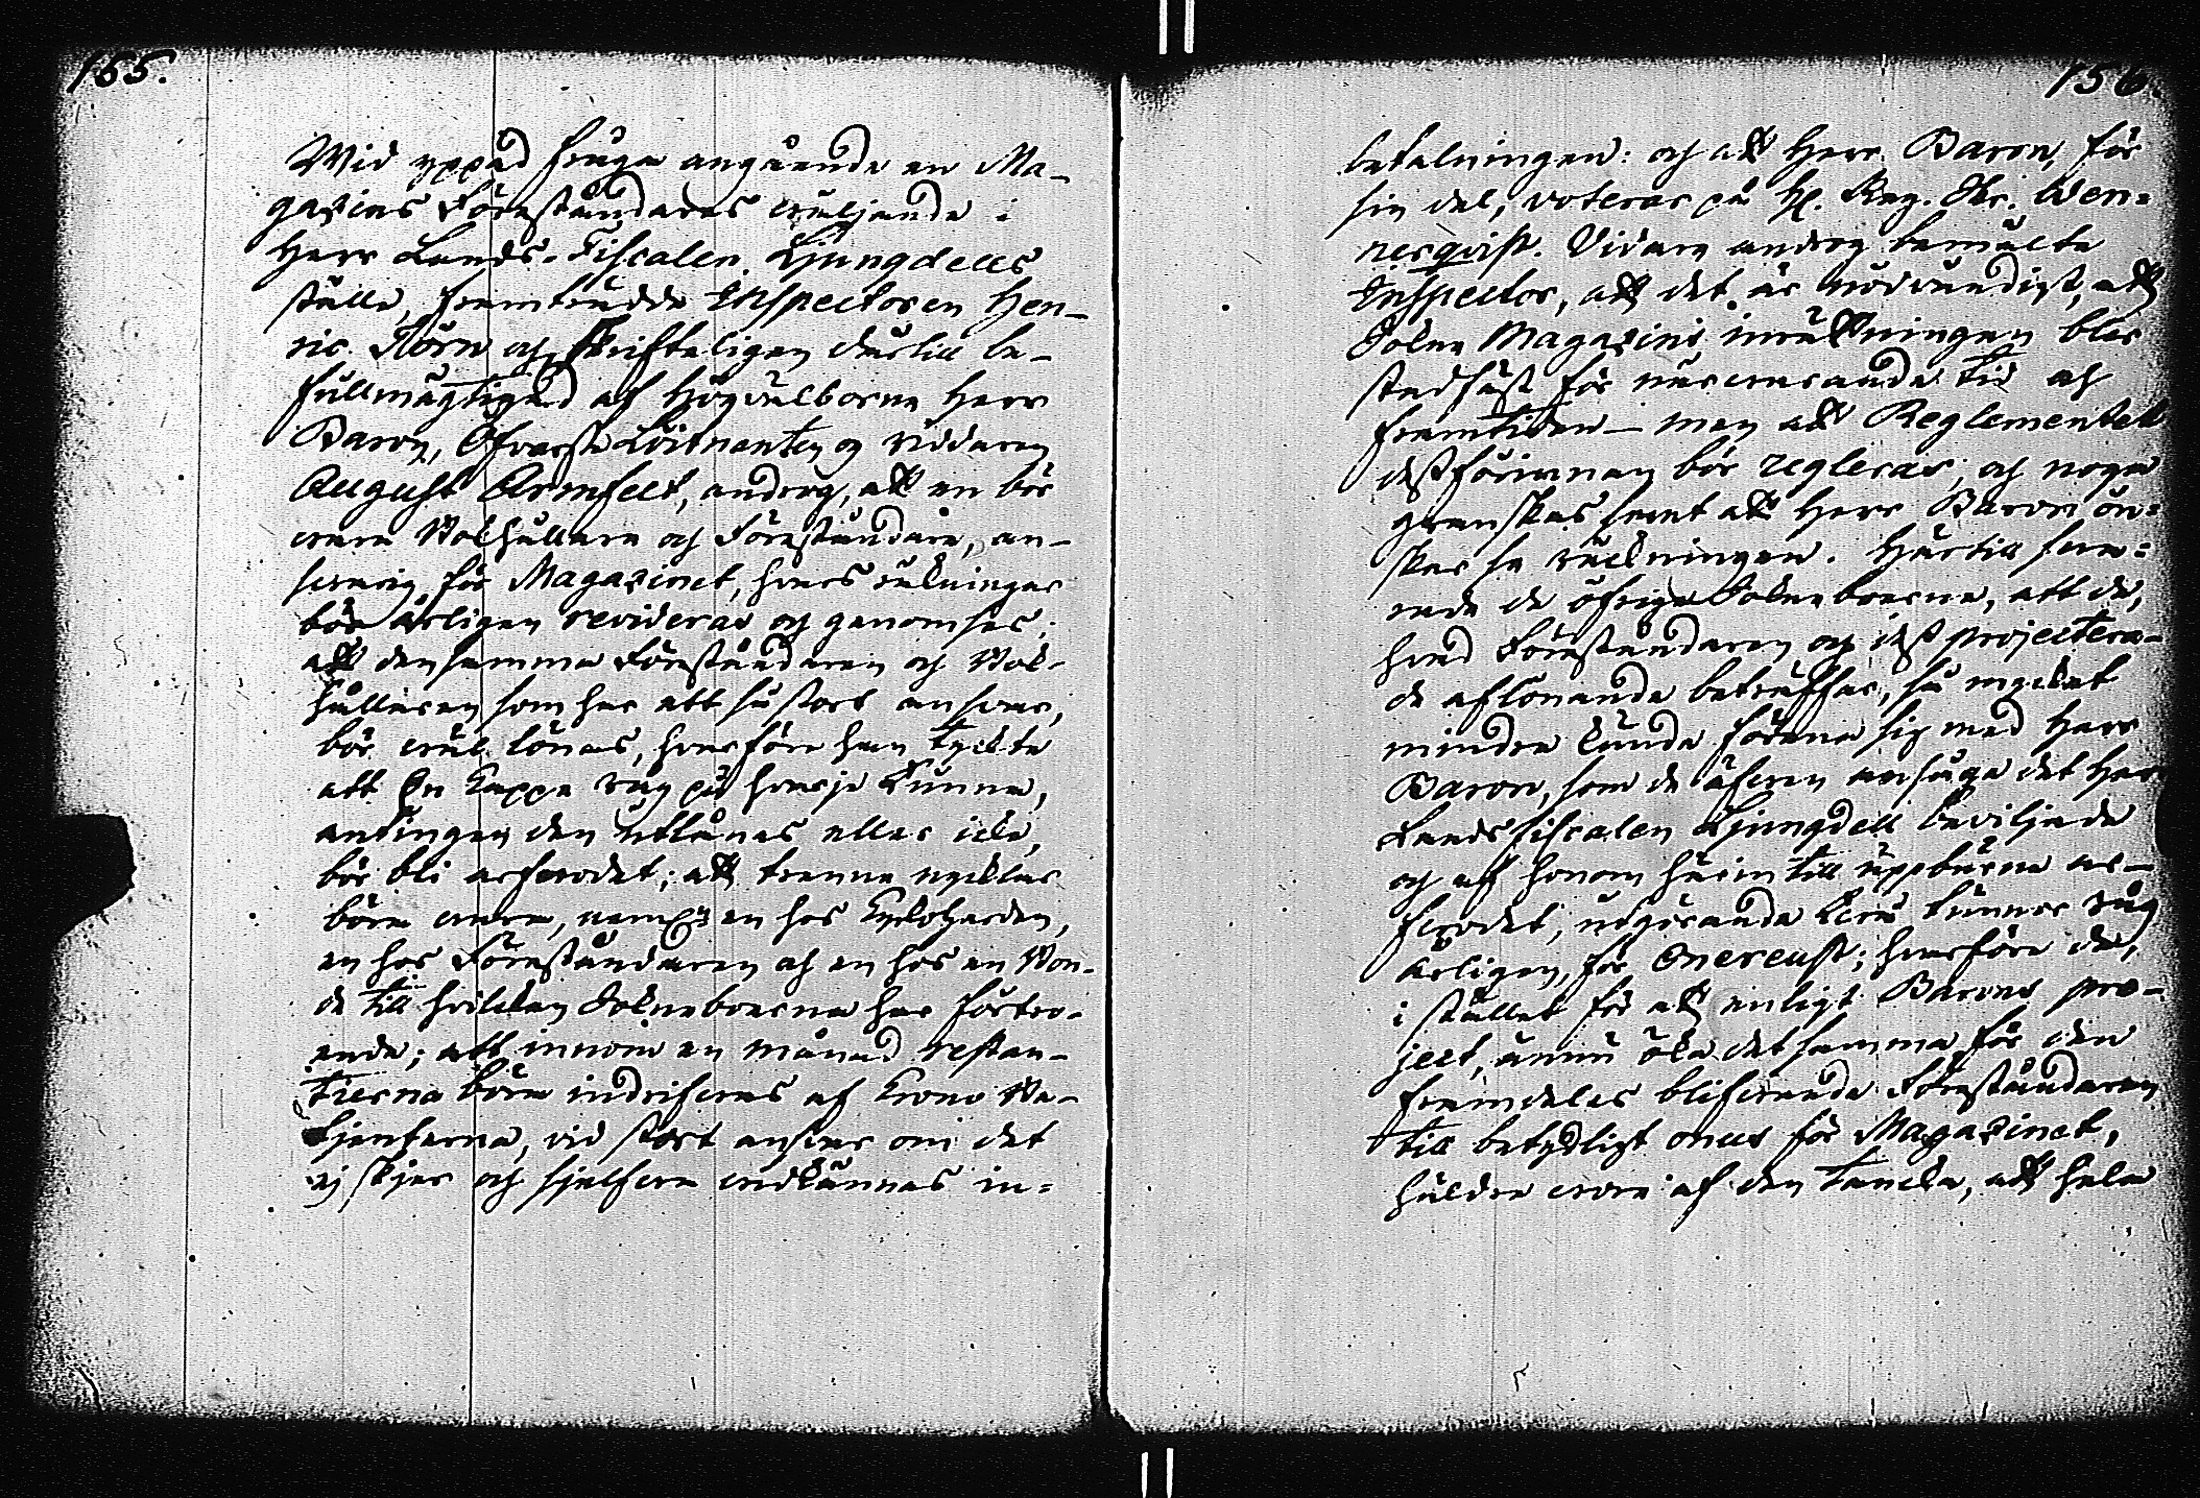 155.
Wid yppad fråga angående en Ma-
gazins Föreståndares wäljande i
Herr Lands-Fiscalen Ljungdells
ställe, framträdde Inspectoren Hen-
ric Törn och skrifteligen dertill be-
fullmägtigad af Högwälborne Herr
Baron, Öfverste Löitnanten och riddaren
August Armfelt, androg, att en bör
wara Bokhållare och Föreståndare, an-
swarig för Magazinet, hvars räkningar
böra årligen revideras och genomses;
att densamma Föreståndaren och Bok-
hållaren som har ett så stort answar,
bör wäl lönas, hvarföre han tyckte
att En Kappe råg på hvarje Tunna,
antingen den utlånas eller icke,
bör bli arfwodet; att trenne nycklar
böra wara, neml. en hos Kyrkoherden,
en hos Föreståndaren och en hos en Bon-
de till hvilken Sokneboerna har förtro-
ende; att innom en månad restan-
tierna böra indrifwas af Krono Be-
tjenterna, vid stort answar om det
ej skjer och sjelfwa widkännas in-
156.
betalningen: och att Herr Baron, för
sin del, voterar på H. Reg. Skr. Wen-
nerqvist. Vidare androg bemälte
Inspector, att det är nödvändigt, att
Sokne Magazins inrättningen blir
stadfäst för närwarande tid och
framtiden – men att Reglementet
dessförinnan bör regleras, och noga
granskas samt att Herr Baron ön-
skar se räkningen. Härtill swa-
rade de öfriga Sokneboerna, att de,
hvad Föreståndaren och dess projectera-
de aflönande beträffar, så mycket
mindre kunde förena sig med Herr
Baron, som de äfwen ansågo det Herr
Landsfiscalen Ljungdell beviljade
och af honom härintill uppburna ar-
fwodet, utgörande twå tunnor råg
årligen, för Onereust; hvarföre de,
i stället för att enligt Barons pro-
ject, ännu öka detsamma för den
framdeles blifwande Föreståndaren
till betydligt onus för Magazinet,
hälldre woro af den tanka, att hela